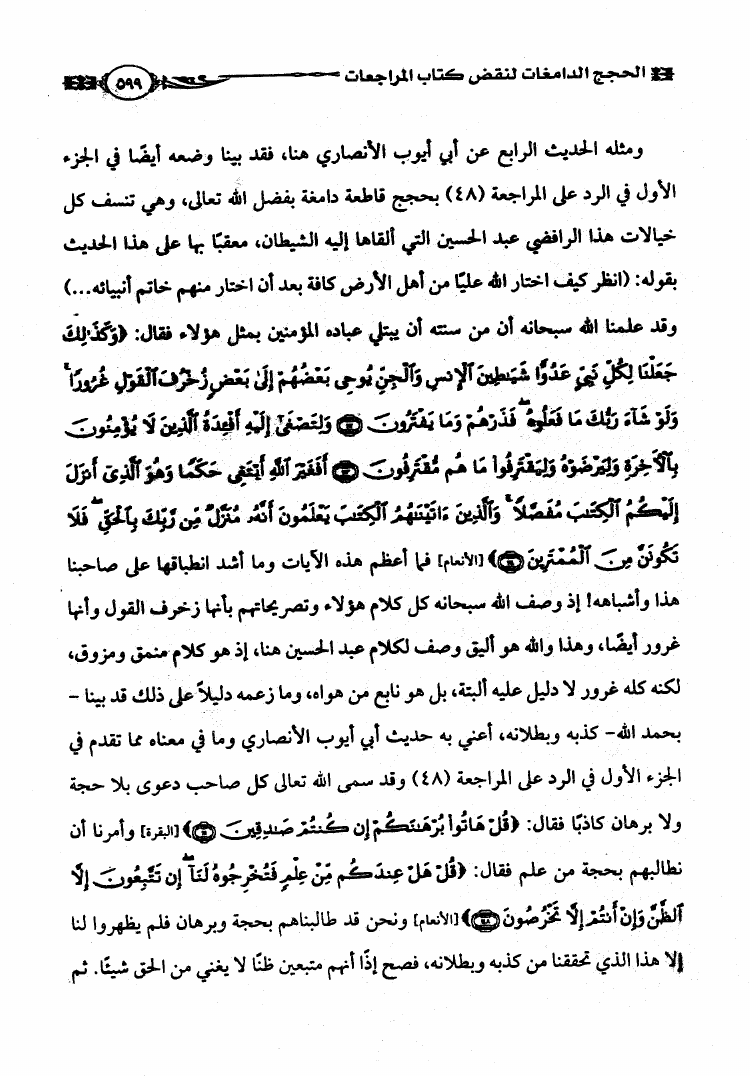 الحجج الدامغات لنقض كتاب المراجعات ٥٩٩
ومثله الحديث الرابع عن أبي أيوب الأنصاري هنا، فقد بينا وضعه أيضًا في الجزء
الأول في الرد على المراجعة (٤٨) بحجج قاطعة دامغة بفضل الله تعالى، وهي تنسف كل
خيالات هذا الرافضي عبد الحسين التي ألقاها إليه الشيطان، معقبًا بها على هذا الحديث
بقوله: (انظر كيف اختار الله عليًا من أهل الأرض كافة بعد أن اختار منهم خاتم أنبيائه...)
وقد علمنا الله سبحانه أن من سنته أن يبتلي عباده المؤمنين بمثل هؤلاء فقال: ﴿وَكَذَٰلِكَ
جَعَلْنَا لِكُلِّ نَبِيٍّ عَدُوًّا شَيَٰطِينَ ٱلْإِنسِ وَٱلْجِنِّ يُوحِى بَعْضُهُمْ إِلَىٰ بَعْضٍ زُخْرُفَ ٱلْقَوْلِ غُرُورًا ۚ
وَلَوْ شَآءَ رَبُّكَ مَا فَعَلُوهُ ۖ فَذَرْهُمْ وَمَا يَفْتَرُونَ ۝ وَلِتَصْغَىٰٓ إِلَيْهِ أَفْـِٔدَةُ ٱلَّذِينَ لَا يُؤْمِنُونَ
بِٱلْـَٔاخِرَةِ وَلِيَرْضَوْهُ وَلِيَقْتَرِفُوا۟ مَا هُم مُّقْتَرِفُونَ ۝ أَفَغَيْرَ ٱللَّهِ أَبْتَغِى حَكَمًا وَهُوَ ٱلَّذِىٓ أَنزَلَ
إِلَيْكُمُ ٱلْكِتَٰبَ مُفَصَّلًا ۚ وَٱلَّذِينَ ءَاتَيْنَٰهُمُ ٱلْكِتَٰبَ يَعْلَمُونَ أَنَّهُۥ مُنَزَّلٌ مِّن رَّبِّكَ بِٱلْحَقِّ ۖ فَلَا
تَكُونَنَّ مِنَ ٱلْمُمْتَرِينَ ۝﴾ [الأنعام] فما أعظم هذه الآيات وما أشد انطباقها على صاحبنا
هذا وأشباهه! إذ وصف الله سبحانه كل كلام هؤلاء وتصريحاتهم بأنها زخرف القول وأنها
غرور أيضًا، وهذا والله هو أليق وصف لكلام عبد الحسين هنا، إذ هو كلام منمق ومزوق،
لكنه كله غرور لا دليل عليه ألبتة، بل هو نابع من هواه، وما زعمه دليلاً على ذلك قد بينا –
بحمد الله- كذبه وبطلانه، أعني به حديث أبي أيوب الأنصاري وما في معناه مما تقدم في
الجزء الأول في الرد على المراجعة (٤٨) وقد سمى الله تعالى كل صاحب دعوى بلا حجة
ولا برهان كاذبًا فقال: ﴿قُلْ هَاتُوا۟ بُرْهَٰنَكُمْ إِن كُنتُمْ صَٰدِقِينَ ۝﴾ [البقرة] وأمرنا أن
نطالبهم بحجة من علم فقال: ﴿قُلْ هَلْ عِندَكُم مِّنْ عِلْمٍ فَتُخْرِجُوهُ لَنَآ ۖ إِن تَتَّبِعُونَ إِلَّا
ٱلظَّنَّ وَإِنْ أَنتُمْ إِلَّا تَخْرُصُونَ ۝﴾ [الأنعام] ونحن قد طالبناهم بحجة وبرهان فلم يظهروا لنا
إلا هذا الذي تحققنا من كذبه وبطلانه، فصح إذًا أنهم متبعين ظنًا لا يغني من الحق شيئًا. ثم